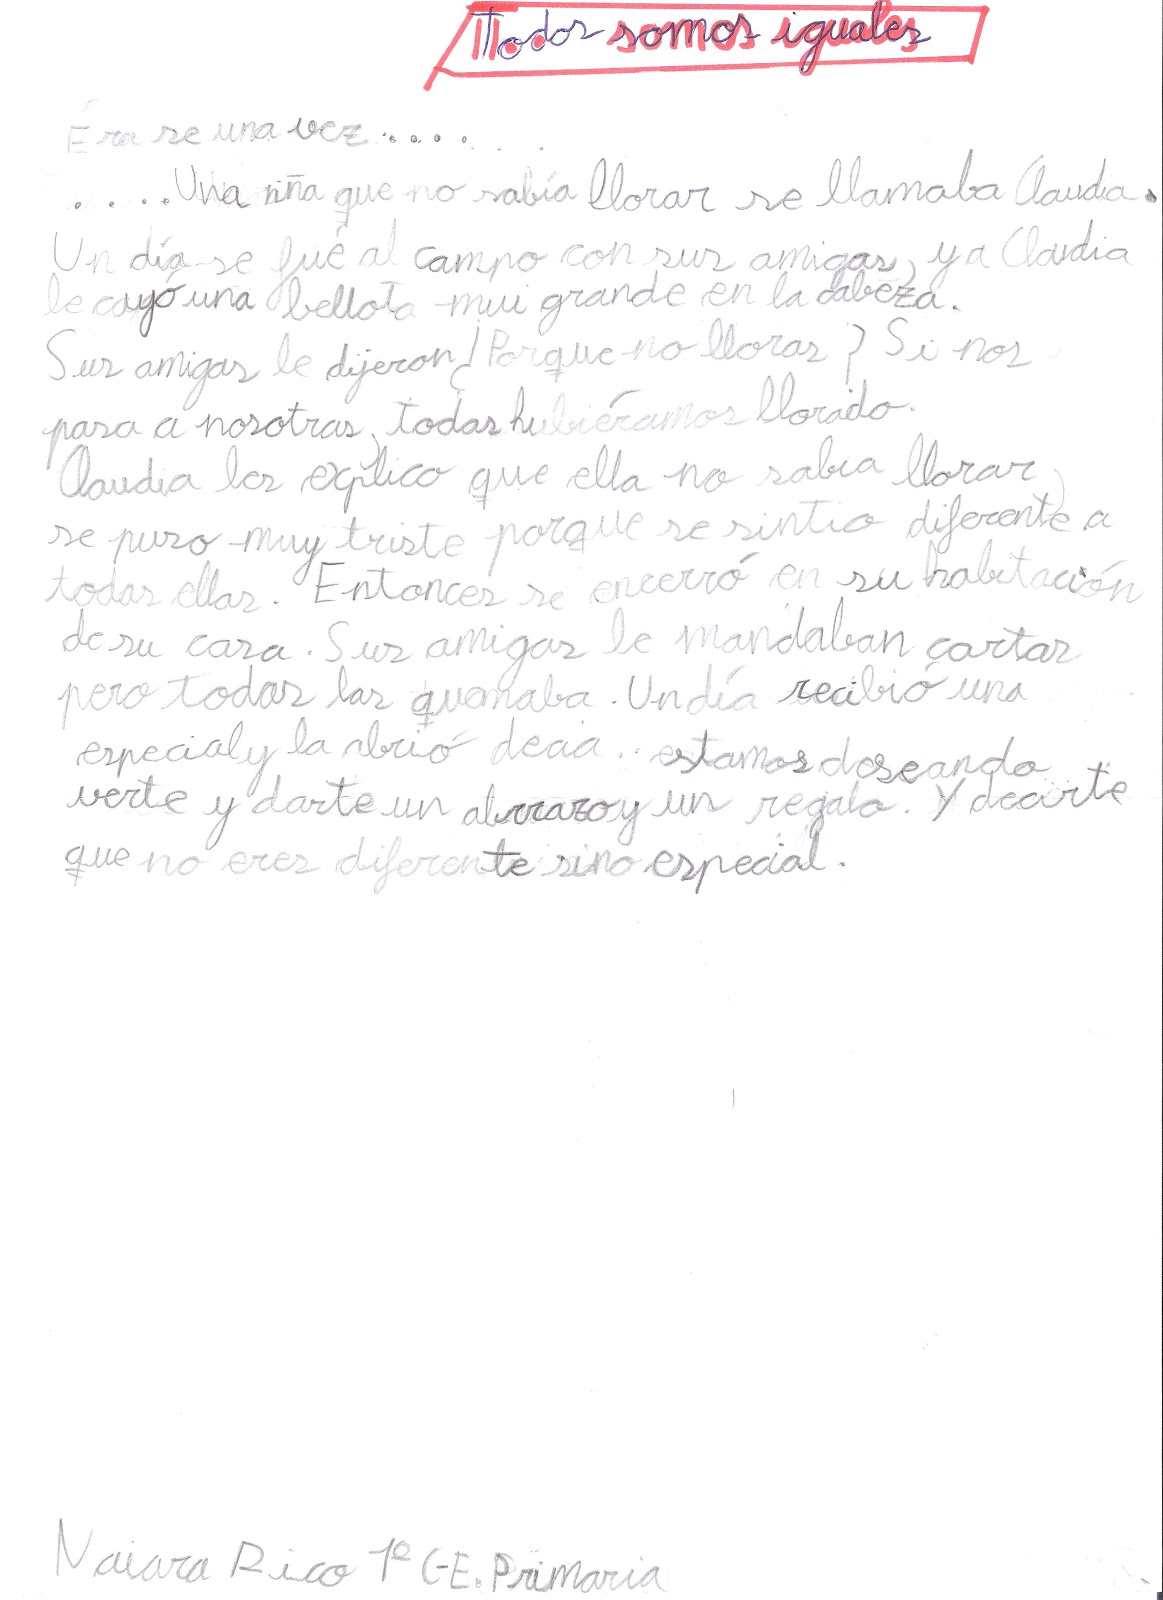 Todos somos iguales
Érase una vez.......
.....Una niña que no sabía llorar se llamaba Claudia.
Un día se fué al campo con sus amigas, y a Claudia
le cayó una bellota mui grande en la cabeza.
Sus amigas le dijeron ¿Porque no lloras? Si nos
pasa a nosotras, todas hubiéramos llorado.
Claudia les explico que ella no sabia llorar,
se puso muy triste porque se sintio diferente a
todas ellas. Entonces se encerró en su habitación
de su casa. Sus amigas le mandaban cartas
pero todas las quemaba. Un día recibió una
especial y la abrió decia.. estamos deseando
verte y darte un abrrazo y un regalo. Y decirte
que no eres diferente sino especial.
Naiara Rico 1º C-E. Primaria